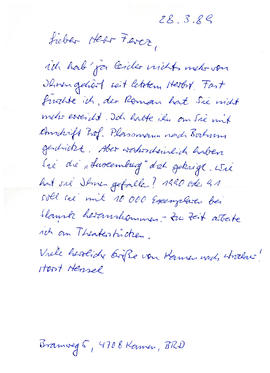 28.3.89
Lieber Herr Ferez,
ich hab' ja leider nichts mehr von
Ihnen gehört seit letztem Herbst. Fast
fürchte ich, der Roman hat Sie nicht
mehr erreicht. Ich hatte ihn an Sie mit
Anschrift Prof. Plassmann nach Bochum
geschickt. Aber wahrscheinlich haben
Sie die „ " doch gekriegt. Wie
hat sie Ihnen gefallen? 1990 oder 91
soll sie mit 10 000 Exemplaren bei
herauskommen. – Zur Zeit arbeite
ich an Theaterstücken.
Viele herzliche Grüße von Kamen nach
Horst Hensel
5, 4708 Kamen, BRD